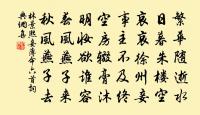 繁華隨逝水
日暮朱樓空
哀哀徐州妾
空房終
明妝欲誰容
春風燕子來
秋風燕子去
林景熙妾薄命六首詞
典網集